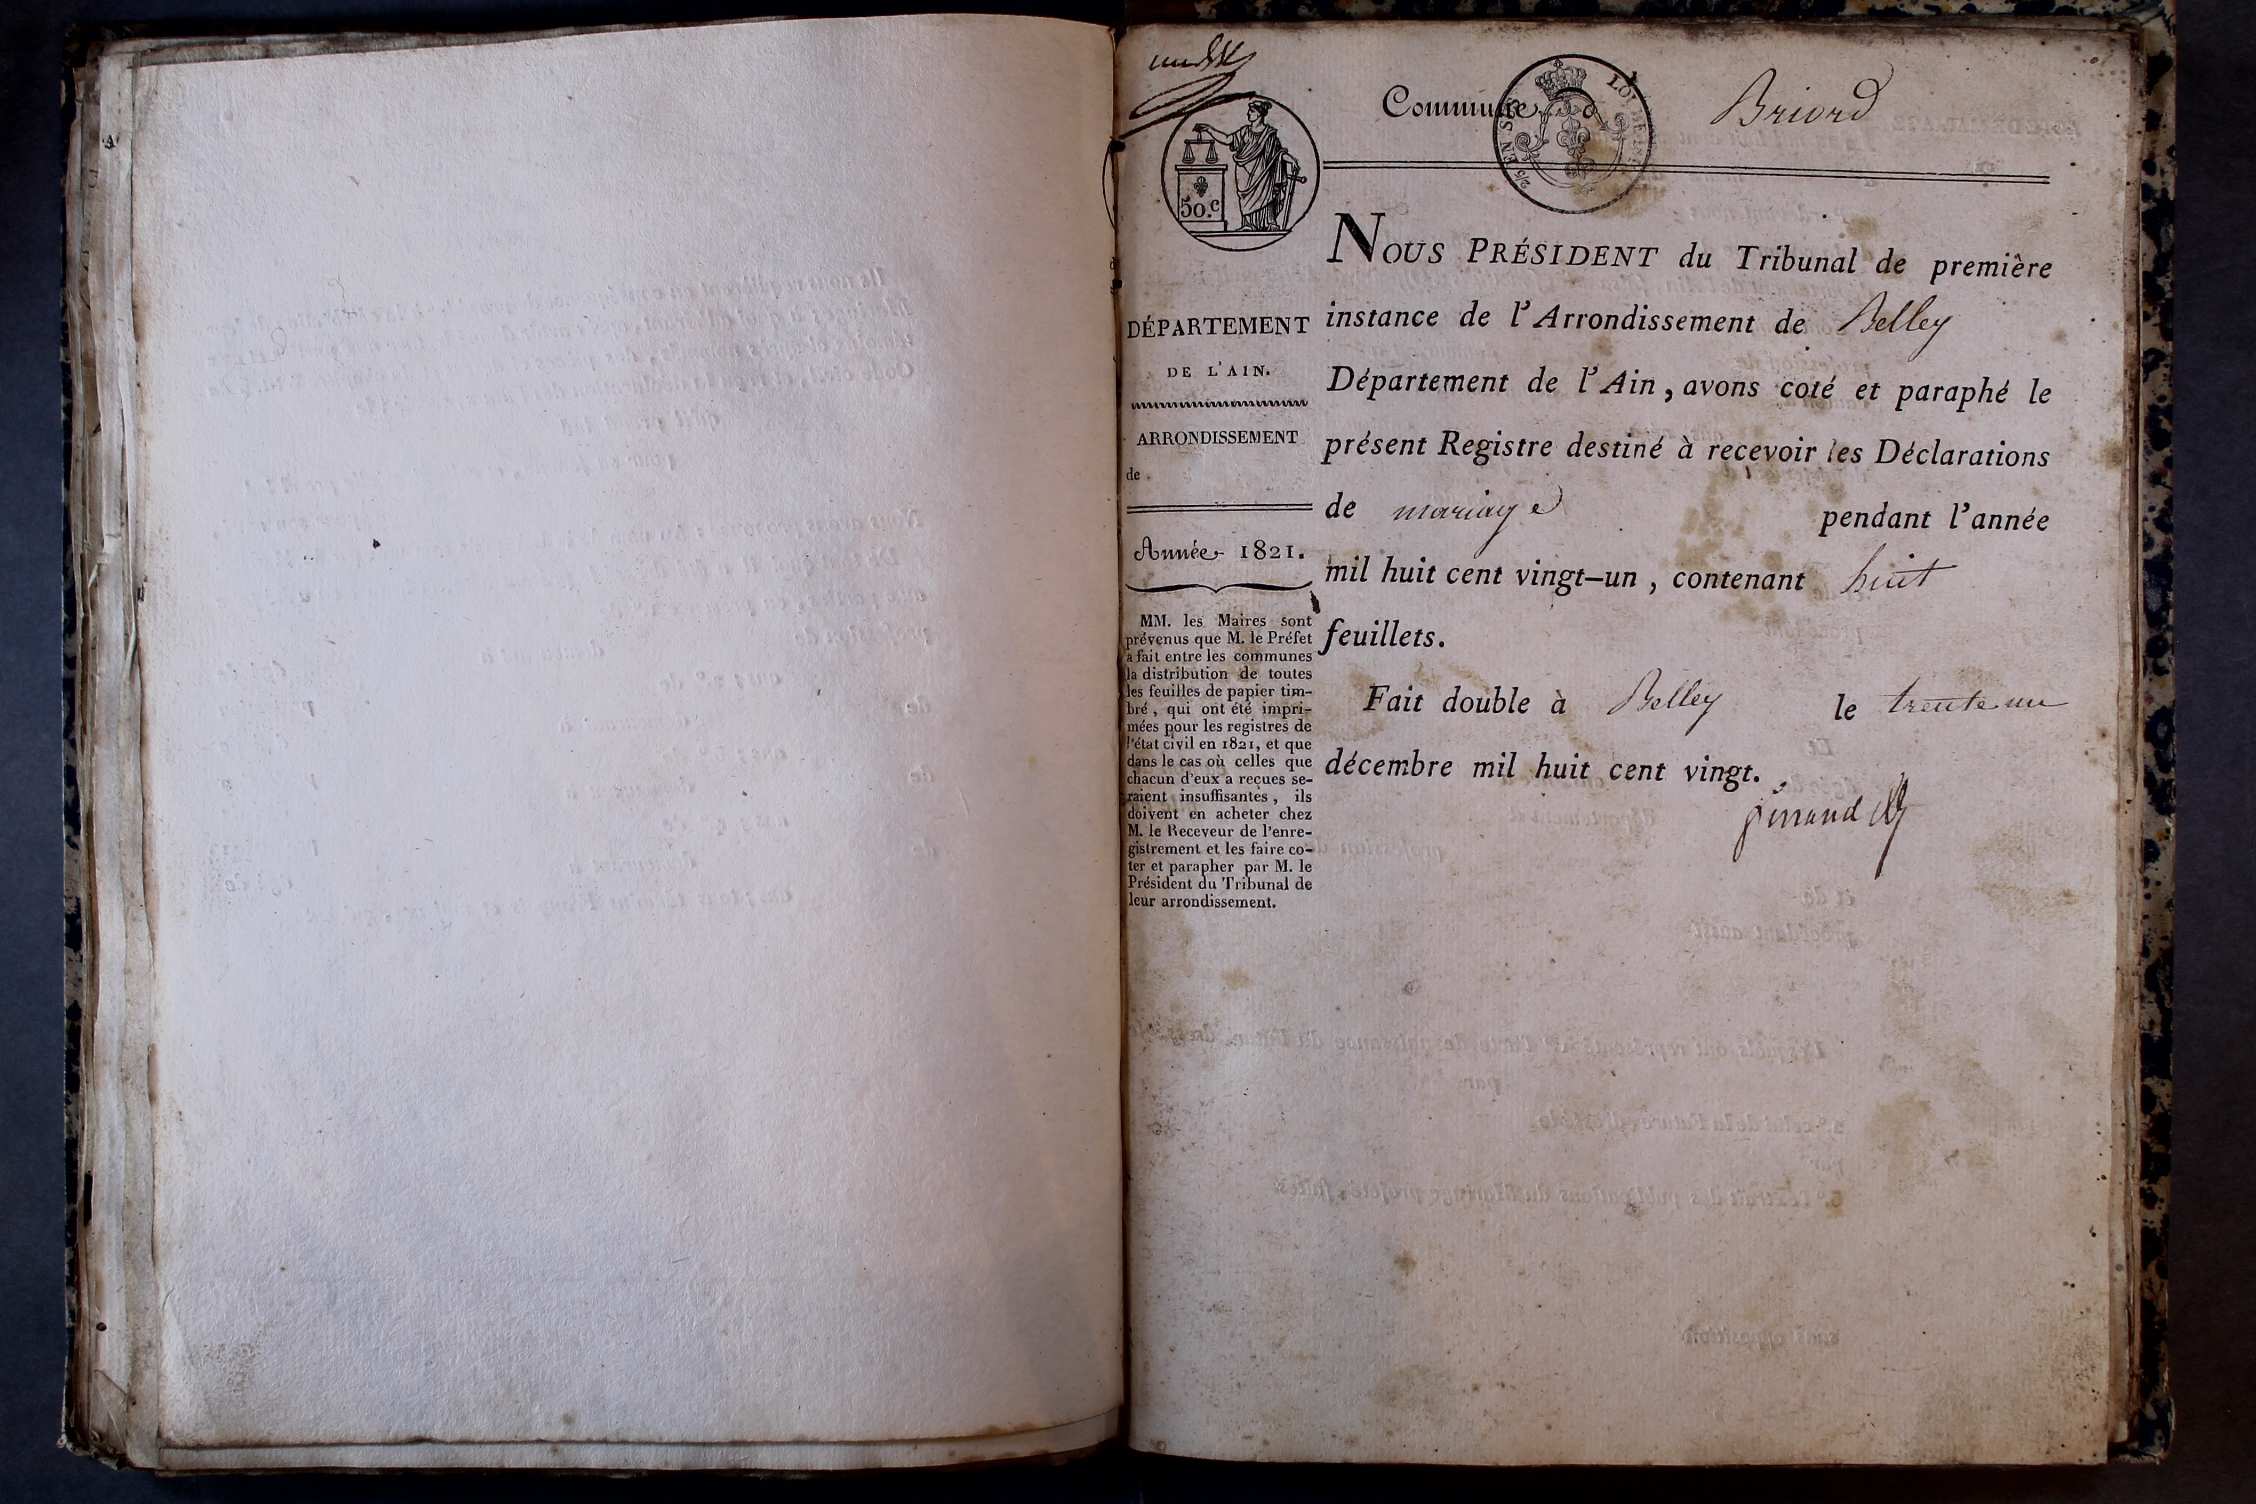 Commune d Briord
50.c
EN SUS
LOI DE
NOUS PRÉSIDENT du Tribunal de première
instance de l'Arrondissement de Belley
Département de l'Ain, avons coté et paraphé le
présent Registre destiné à recevoir les Déclarations
de mariage pendant l'année
mil huit cent vingt-un, contenant huit
feuillets.
Fait double à Belley le trente un
décembre mil huit cent vingt.
DÉPARTEMENT
DE L'AIN.
ARRONDISSEMENT
de
Année 1821.
MM. les Maires sont
prévenus que M. le Préfet
a fait entre les communes
la distribution de toutes
les feuilles de papier tim-
bré, qui ont été impri-
mées pour les registres de
l'état civil en 1821, et que
dans le cas où celles que
chacun d'eux a reçues se-
raient insuffisantes, ils
doivent en acheter chez
M. le Receveur de l'enre-
gistrement et les faire co-
ter et parapher par M. le
Président du Tribunal de
leur arrondissement.